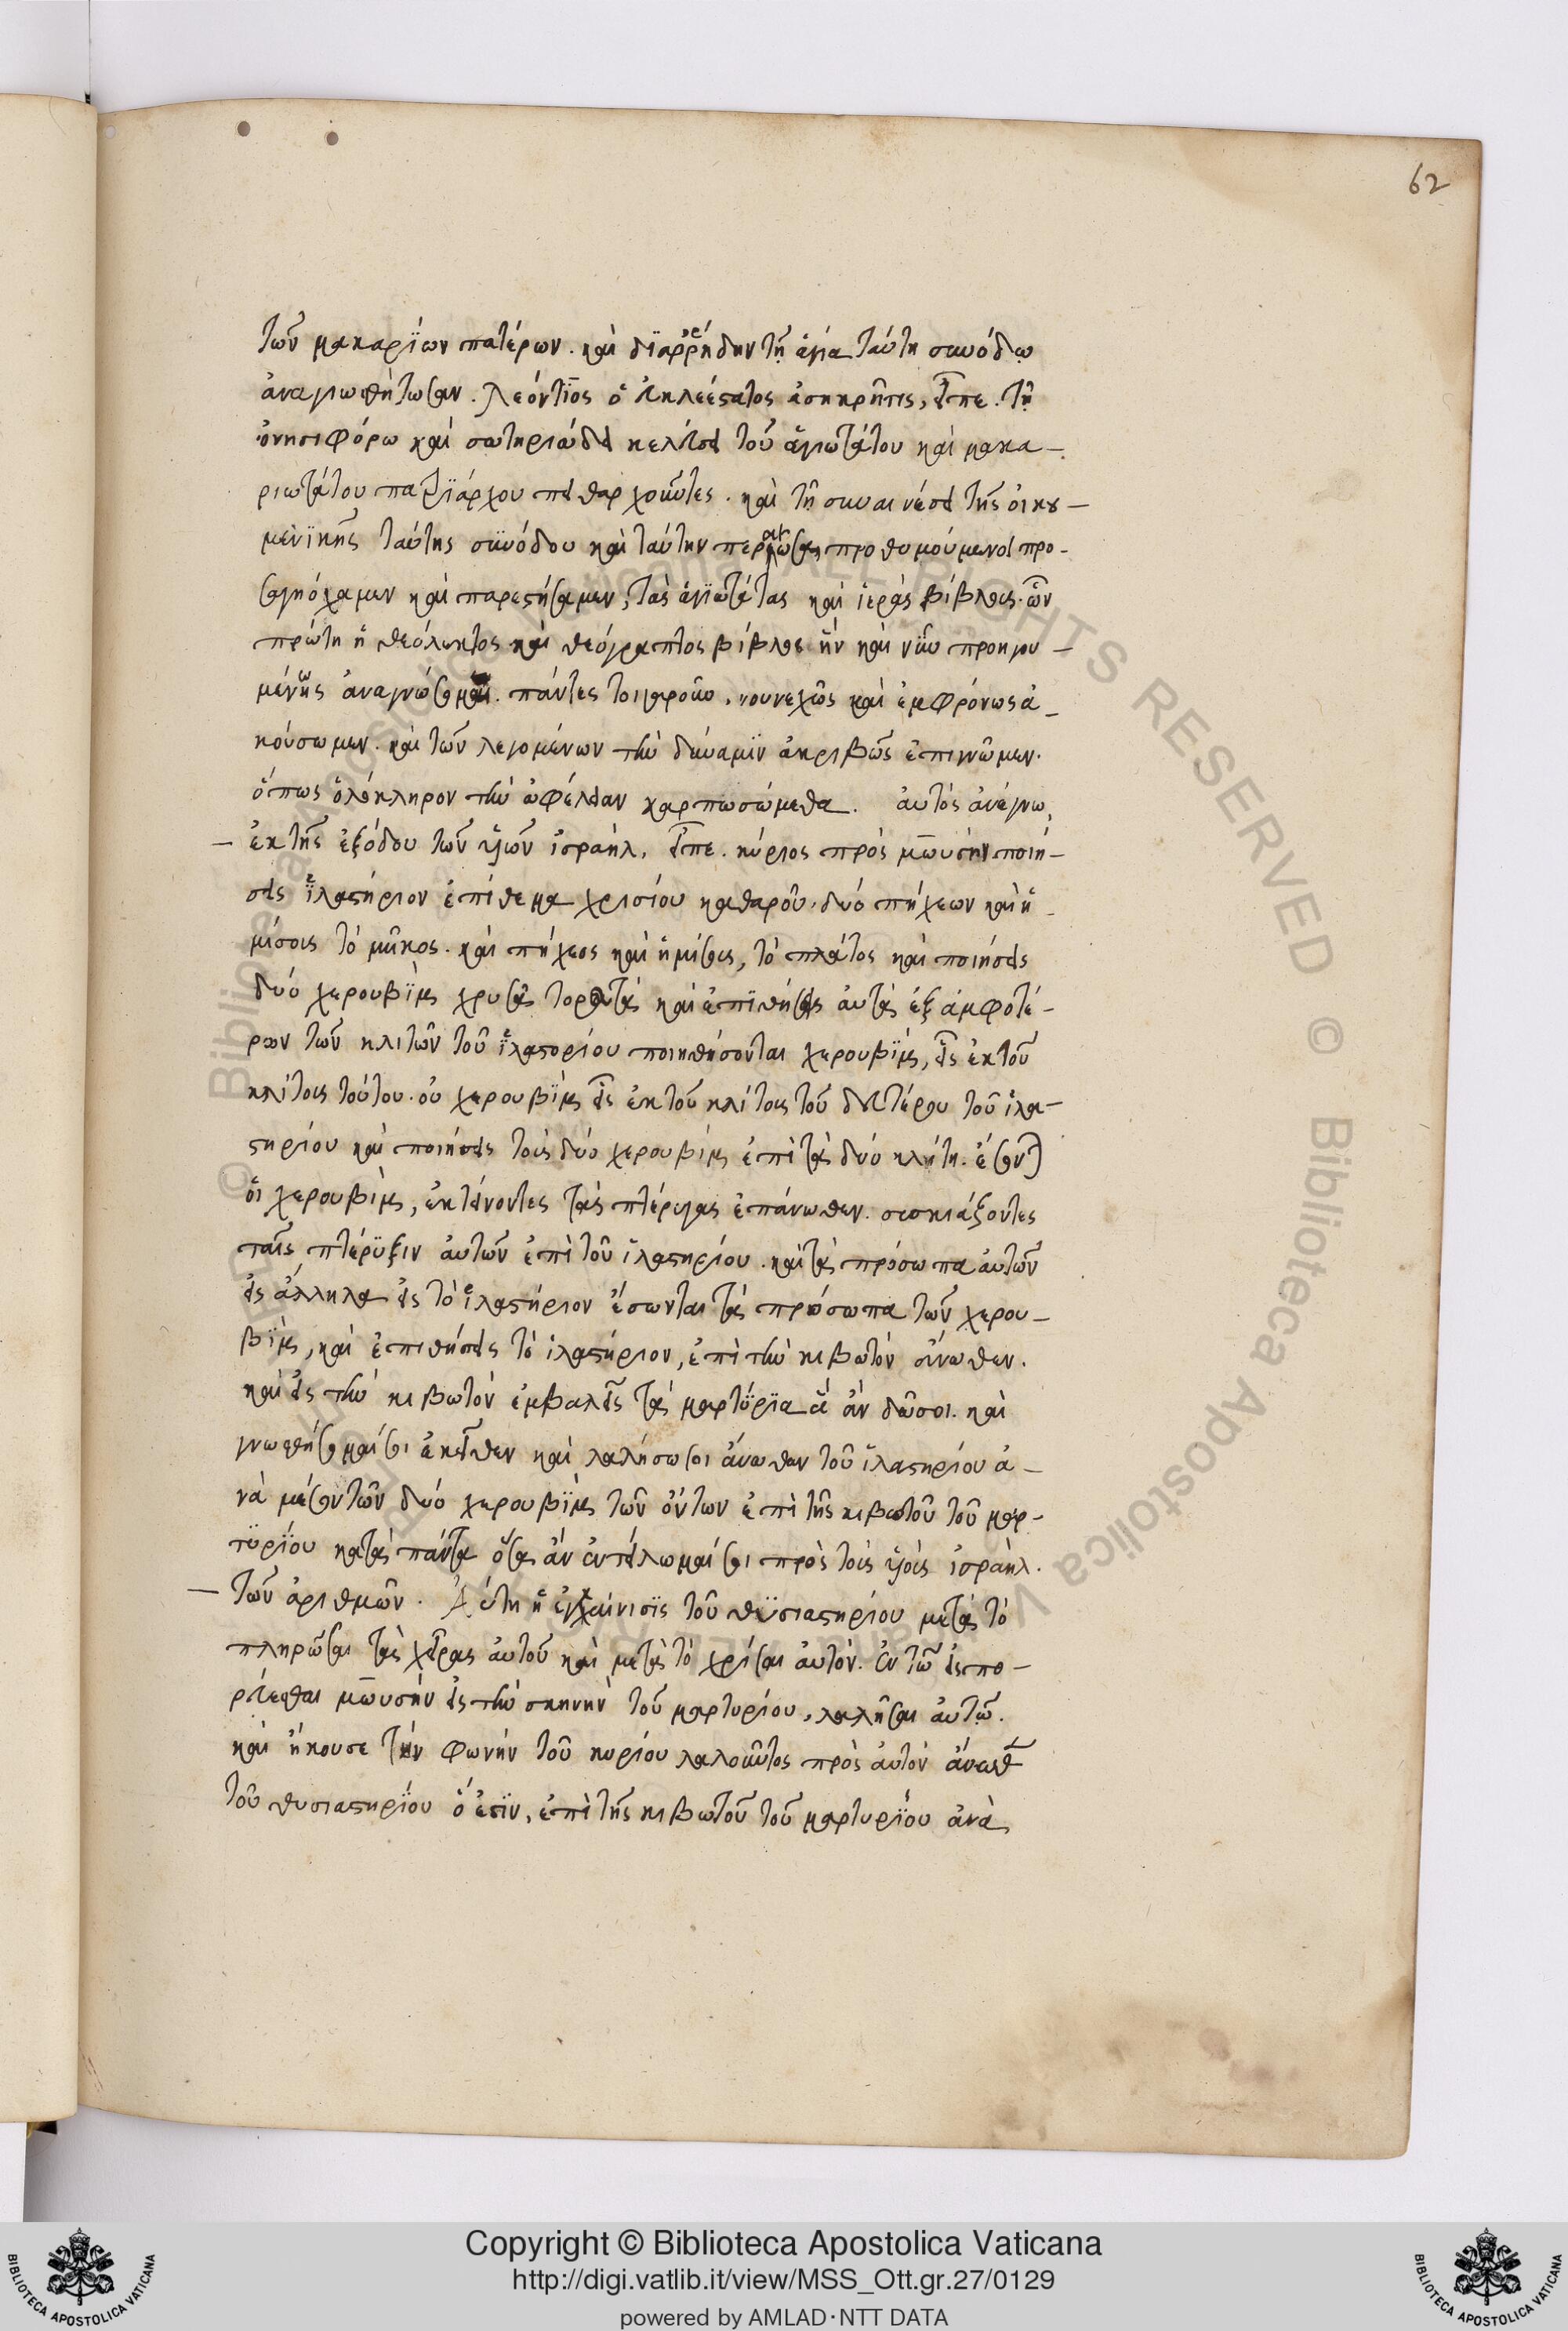 62
τῶν μακαρΐων πατέρων. καὶ δϊαρρήδην τῇ ἁγία ταύτη συνόδω
ἀναγνωσθήτωσαν. Λεόντϊος ὁ εὐκλεέστατος ἀσηκρῆτις, εἶπε. τῇ
ὀνησιφόρω καὶ σωτηριώδει κελεύσει τοῦ ἁγιωτάτου καὶ μακα-
ριωτάτου πατρϊάρχου πειθαρχοῦντες. καὶ τῇ συναινέσει τῆς οἰκου-
μενϊκῆς ταύτης συνόδου καὶ ταύτην προθυμούμενοι προ-
σαγηόχαμεν καὶ παρεστήσαμεν, τὰς ἁγϊωτάτας καὶ ἱερὰς βίβλους. ὧν
πρώτη ἡ θεόλεκτος καὶ θεόγραπτος βίβλος ἣν καὶ νῦν προηγου-
μένως ἀναγνώσομαι. πάντες τοιγαροῦν, νουνεχῶς καὶ ἐμφρόνως ἀ-
κούσωμεν. καὶ τῶν λεγομένων τὴν δύναμϊν ἀκριβῶς ἐπιγνῶμεν.
ὅπως ὁλόκληρον τὴν ὠφέλειαν καρπωσώμεθα. αὐτὸς ἀνέγνω,
ἐκ τῆς ἐξόδου τῶν υἱῶν ἰσραήλ. εἶπε. κύριος πρὸς μωυσὴν ποιή-
σεις ἱλαστήριον ἐπίθεμα χρισίου καθαροῦ. δύο πήχεων καὶ ἡ-
μίσους τὸ μῆκος. καὶ πήχεος καὶ ἡμίσους, τὸ πλάτος καὶ ποιήσεις
δύο χερουβῒμ χρυσᾶ τορευτὰ καὶ ἐπϊθήσεις αὐτὰ ἐξ ἀμφοτέ-
ρων τῶν κλιτῶν τοῦ ἱλαστορίου ποιηθήσονται χερουβῒμ, εἷς ἐκ τοῦ
κλίτους τούτου. οὐ χερουβῒμ εἷς ἐκ τοῦ κλίτους τοῦ δευτέρου τοῦ ἱλα-
στηρίου καὶ ποιήσεις τοὺς δύο χερουβὶμ ἐπὶ τὰ δύο κλήτη. ἔσονται
οἱ χερουβὶμ, ἐκτείνοντες τὰς πτέρυγας ἐπάνωθεν. συσκιάζοντες
ταῖς πτέρϋξιν αὐτῶν ἐπὶ τοῦ ἱλαστηρίου. καὶ τὰ πρόσωπα αὐτῶν
εἰς ἄλληλα εἰς τὸ ἱλαστήριον ἔσωνται τὰ πρόσωπα τῶν χερου-
βῒμ, καὶ ἐπιθήσεις τὸ ἱλαστήριον, ἐπὶ τὴν κιβωτὸν ἄνωθεν.
καὶ εἰς τὴν κιβωτὸν ἐμβαλεῖς τὰ μαρτύρϊα ἃ ἂν δῶσοι. καὶ
γνωσθήσομαί σοι ἐκεῖθεν καὶ λαλήσω σοι ἄνωθεν τοῦ ἱλαστηρίου ἀ-
νὰ μέσον τῶν δύο χερουβῒμ τῶν ὄντων ἐπὶ τῆς κιβωτοῦ τοῦ μαρ-
τϋρΐου κατὰ πάντα ὅσα ἂν ἐντέλωμαί σοι πρὸς τοὺς υἱοὺς ἰσραήλ.
τῶν ἀριθμῶν. Αὕτη ἡ ἐγκαίνισϊς τοῦ θϋσιαστηρίου μετὰ τὸ
πληρῶσαι τὰς χεῖρας αὐτοῦ καὶ μετὰ τὸ χρίσαι αὐτόν. ἐν τῶ εἰσπο-
ρεύεσθαι μωυσὴν εἰς τὴν σκηνὴν τοῦ μαρτυρίου, λαλῆσαι αὐτῶ.
καὶ ἤκουσε τὴν φωνὴν τοῦ κυρίου λαλοῦντος πρὸς αὐτὸν ἄνωθεν
τοῦ θυσιαστηρΐου ὅ ἐστϊν, ἐπὶ τῆς κιβωτοῦ τοῦ μαρτυρΐου ἀνὰ
Copyright © Biblioteca Apostolica Vaticana
http://digi.vatlib.it/view/MSS_Ott.gr.27/0129
powered by AMLAD·NTT DATA